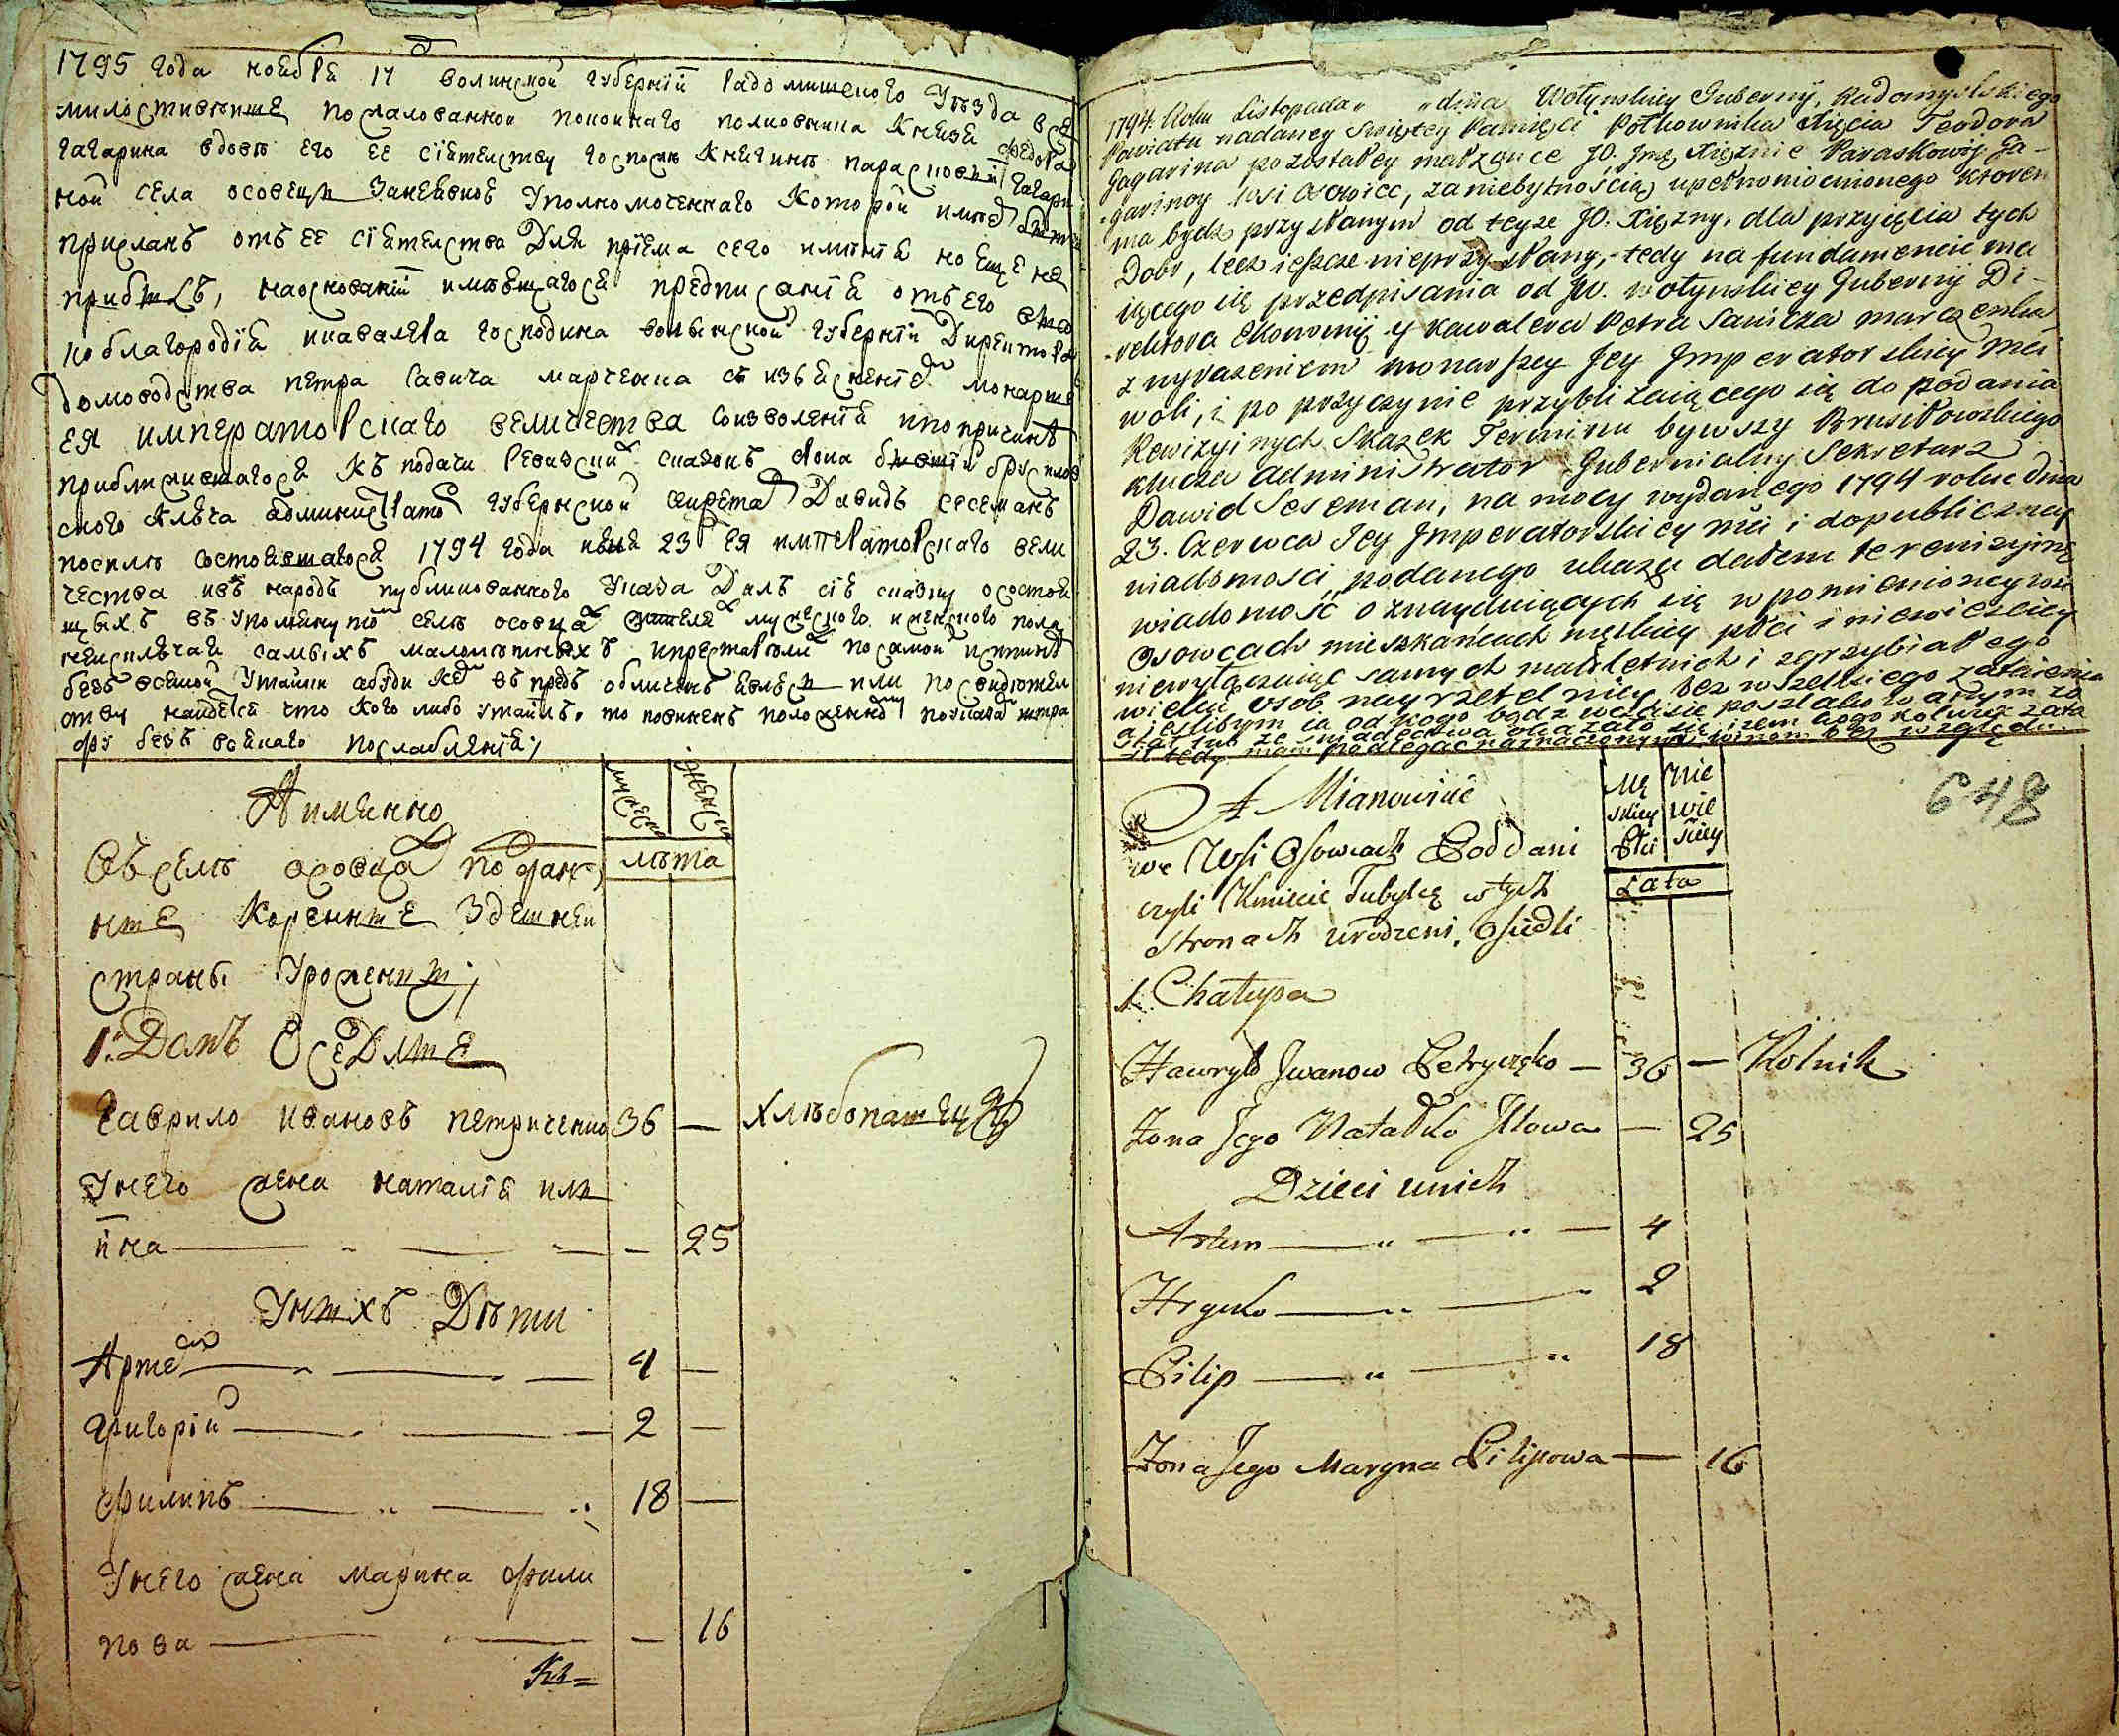 1795 года ноебре 17 д волинской губернїи Радомишеского Уѣзда все
милостивѣише пожалованной покоинаго полковника Князе Федора
гагарина вдовѣ его ее сїетелству госпожѣ Княгинѣ парасковїи гагари
ной села осовецъ Занеивкое Уполномоченнаго Которой имѣе бытъ
присланъ отъ ее сїетелства Для прїема сего имѣнїе но еще не
прибылъ, наоснованїи имѣющагосе предписанїе отъ его высо
коблагородїе икавалера господина волынской губернїи Директора
Домоводства петра савича марченка съ изъесненїе монаршей
ея императорскаго величества соизволенїе ипопричинѣ
приближившагосе Къ подачи Ревизски сказокъ
ского Ключа администрато губернской секрета Давидъ сесеманъ
посилѣ состоявшагосе 1794 года июне 23 ея императорскаго вели
чества ивъ народъ публикованного Указа Далъ сїю сказку осостои
щыхъ въ Упомянуто селѣ осовца жителе мужеского иженского пола
неисключая самыхъ малолѣтныхъ ипрестарѣлы посамой истиннѣ
безъ всякой Утайки абуди Ке въ предъ обличенъ явлюсь или посвидѣтел
ству найдется что Кого либо Утаилъ, то повиненъ положенно поуказа штра
фу безъ всякаго послабленїе;
Аимянно
мужеска
женска
Въ селѣ осовца подан
лѣта
ные Коренные Здешней
страны Уроженцы;
1. Домъ Оседлые
гаврило ивановъ петриченко 36 — хлѣбопашецъ
Унего жена наталїя илѣ
ина — — — 25
Унихъ Дѣти
Арте — — 4 —
григорїй — — 2 —
филипъ — — 18 —
Унего жена марина фили
пова — — — 16
1794. Roku Listopada „ „ dnia Wołynskiey Guberny, Radomyslskiego
Powiatu nadaney Swiętey Pamięci Połkownika Xięcia Teodora
Gagarina pozostałey małżąnce JO. Jmę Xiężnie Paraskowij Ga-
-garinoy wsi Osowiec, za niebytnością upełnomocnionego Ktoren
ma bydz przysłanym od teyze JO. Xiężny, dla przyięcia tych
Dobr, lecz ieszcze nieprzysłany, tedy na fundamencie ma
iącego się przedpisania od JW. wołynskiey Guberny Di-
-rektora Ekonomij y kawalera Petra Sawicza marczenka
z wyrazeniem monarszey Jey Jmperatorskiey Mci
woli, i po przyczynie przybliżaiącego się do podania
Rewizyinych Skazek Terminu bywszy Brusiłowskiego
klucza administrator Gubernialny Sekretarz
Dawid Seseman, na mocy wydanego 1794 roku dnia
23. Czerwca Jey Jmperatorskiey Mci i dopubliczney
wiadomosci podanego ukazu dałem te rewizyjną
wiadomość o znayduiących się w pomienioney wsi
Osowcach mieszkańcach męskiey płci i niewiesciey
niewyłączaiąc samych małoletnich i zgrzybiałego
wieku osob nayrzetelniey bez wszelkiego zataienia
a ieslibym ia od kogo bądz
tedy mam podlegać naznaczonym winom bez względu.
A Mianowicie
Mę skiey Płci
Nie wie sciey
648
we Wsi Osowcach Poddani
Lata
czyli Kmiecie Tubylcę w tych
stronach urodzeni, Osiedli
1. Chałupa
Hawryło Jwanow Petryczęko — 36 — Rolnik
Żona Jego Natałko Jlowa — 25
Dzieci unich
Artem — „ — „ — 4
Hryćko — „ — „ 2
Pilip — „ — „ 18
Żona Jego Maryna Pilipowa — 16